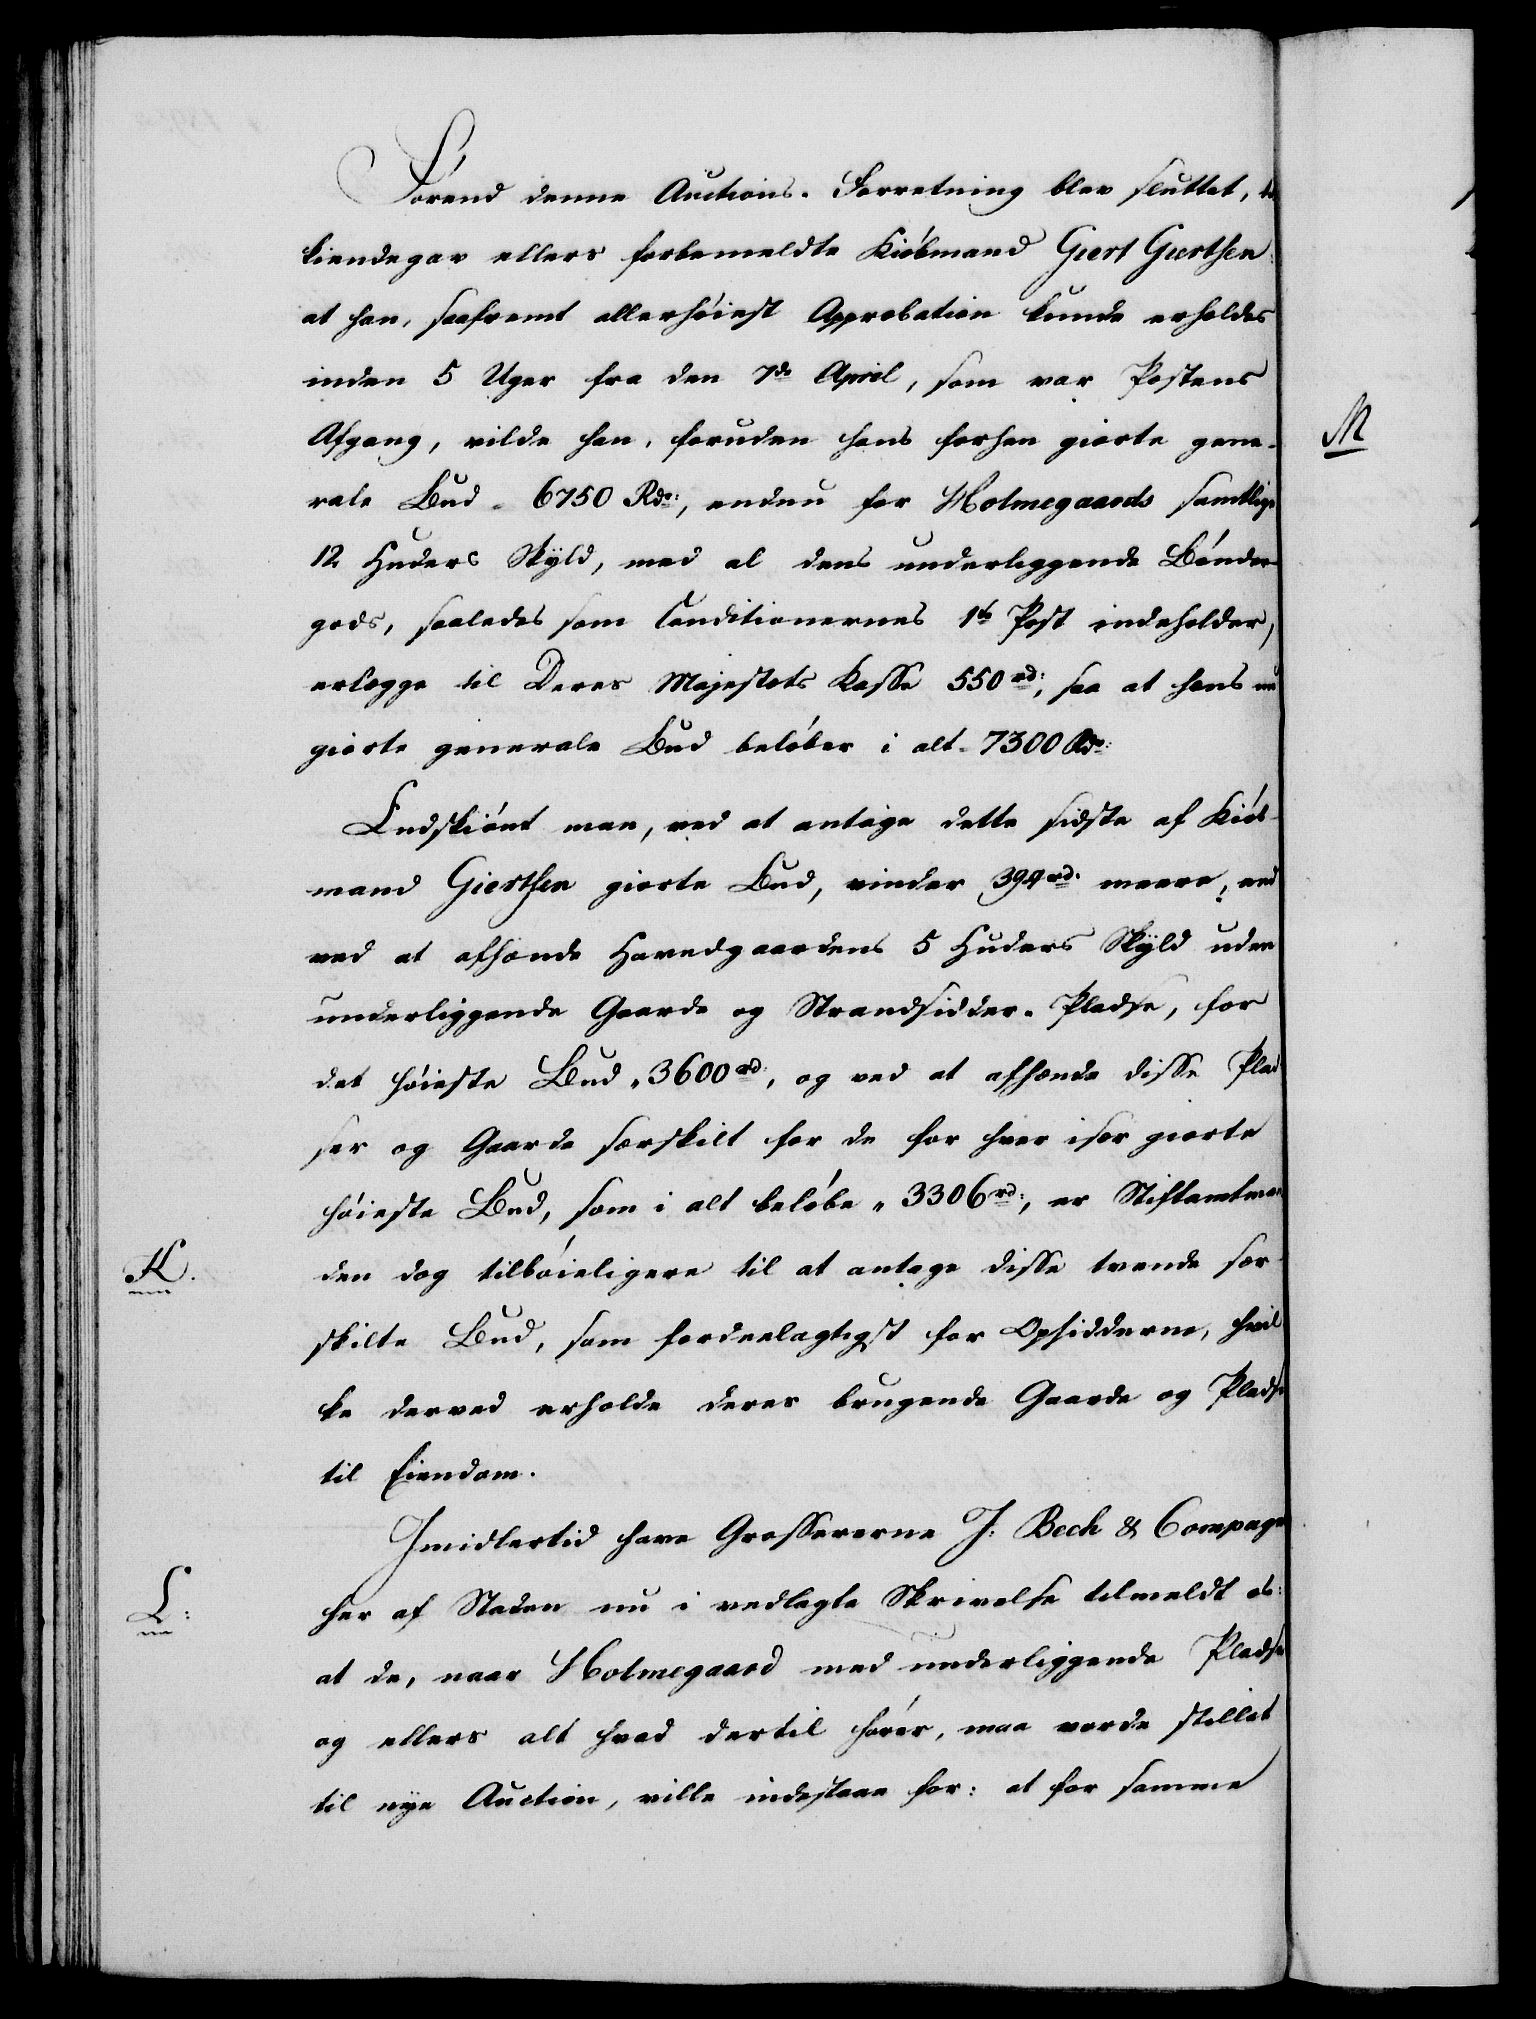 Förend denne Auctions-Forretning blev sluttet,
kiendegav ellers forbemeldte Kiöbmand Giert Giertsen:
at han, saafremt allerhöiest Approbation kunde erholdes
inden 5 Uger fra den 7de April, som var Postens
Afgang, vilde han, foruden hans forhen giorte gene-
rale Bud - 6750 Rdr:, endnu for Holmegaards samtlige
12 Huders Skyld, med al dens underliggende Bönder-
gods, saaledes som Conditionernes 1te Post indeholder,
erlægge til Deres Majestets Kasse 550 rd:, saa at hans nu
giorte generale Bud belöber i alt - 7300 Rdr:
Endskiönt man, ved at antage dette sidste af Kiöb-
mand Giertsen giorte Bud, vinder 394 rd. meere, end
ved at afhænde Hovedgaardens 5 Huders Skyld uden
underliggende Gaarde og Strandsidder-Pladse, for
det höieste Bud, 3600 rd:, og ved at afhænde disse Plad
ser og Gaarde særskilt for de for hver især giorte
höieste Bud, som i alt belöbe, 3306 rd:, er Stiftamtman
K.
den dog tilböieligere til at antage disse tvende sær-
skilte Bud, som fordeelagtigst for Opsidderne, hvil
ke derved erholde deres brugende Gaarde og Pladse
til Eiendom.
Imidlertid have Grossererne J: Beck & Compagn
L:
her af Staden nu i vedlagte Skrivelse tilmeldt os:
at de, naar Holmegaard med underliggende Pladse
og ellers alt hvad dertil hörer, maa vorde stillet
til nye Auction, ville indestaae for: at for samme
M